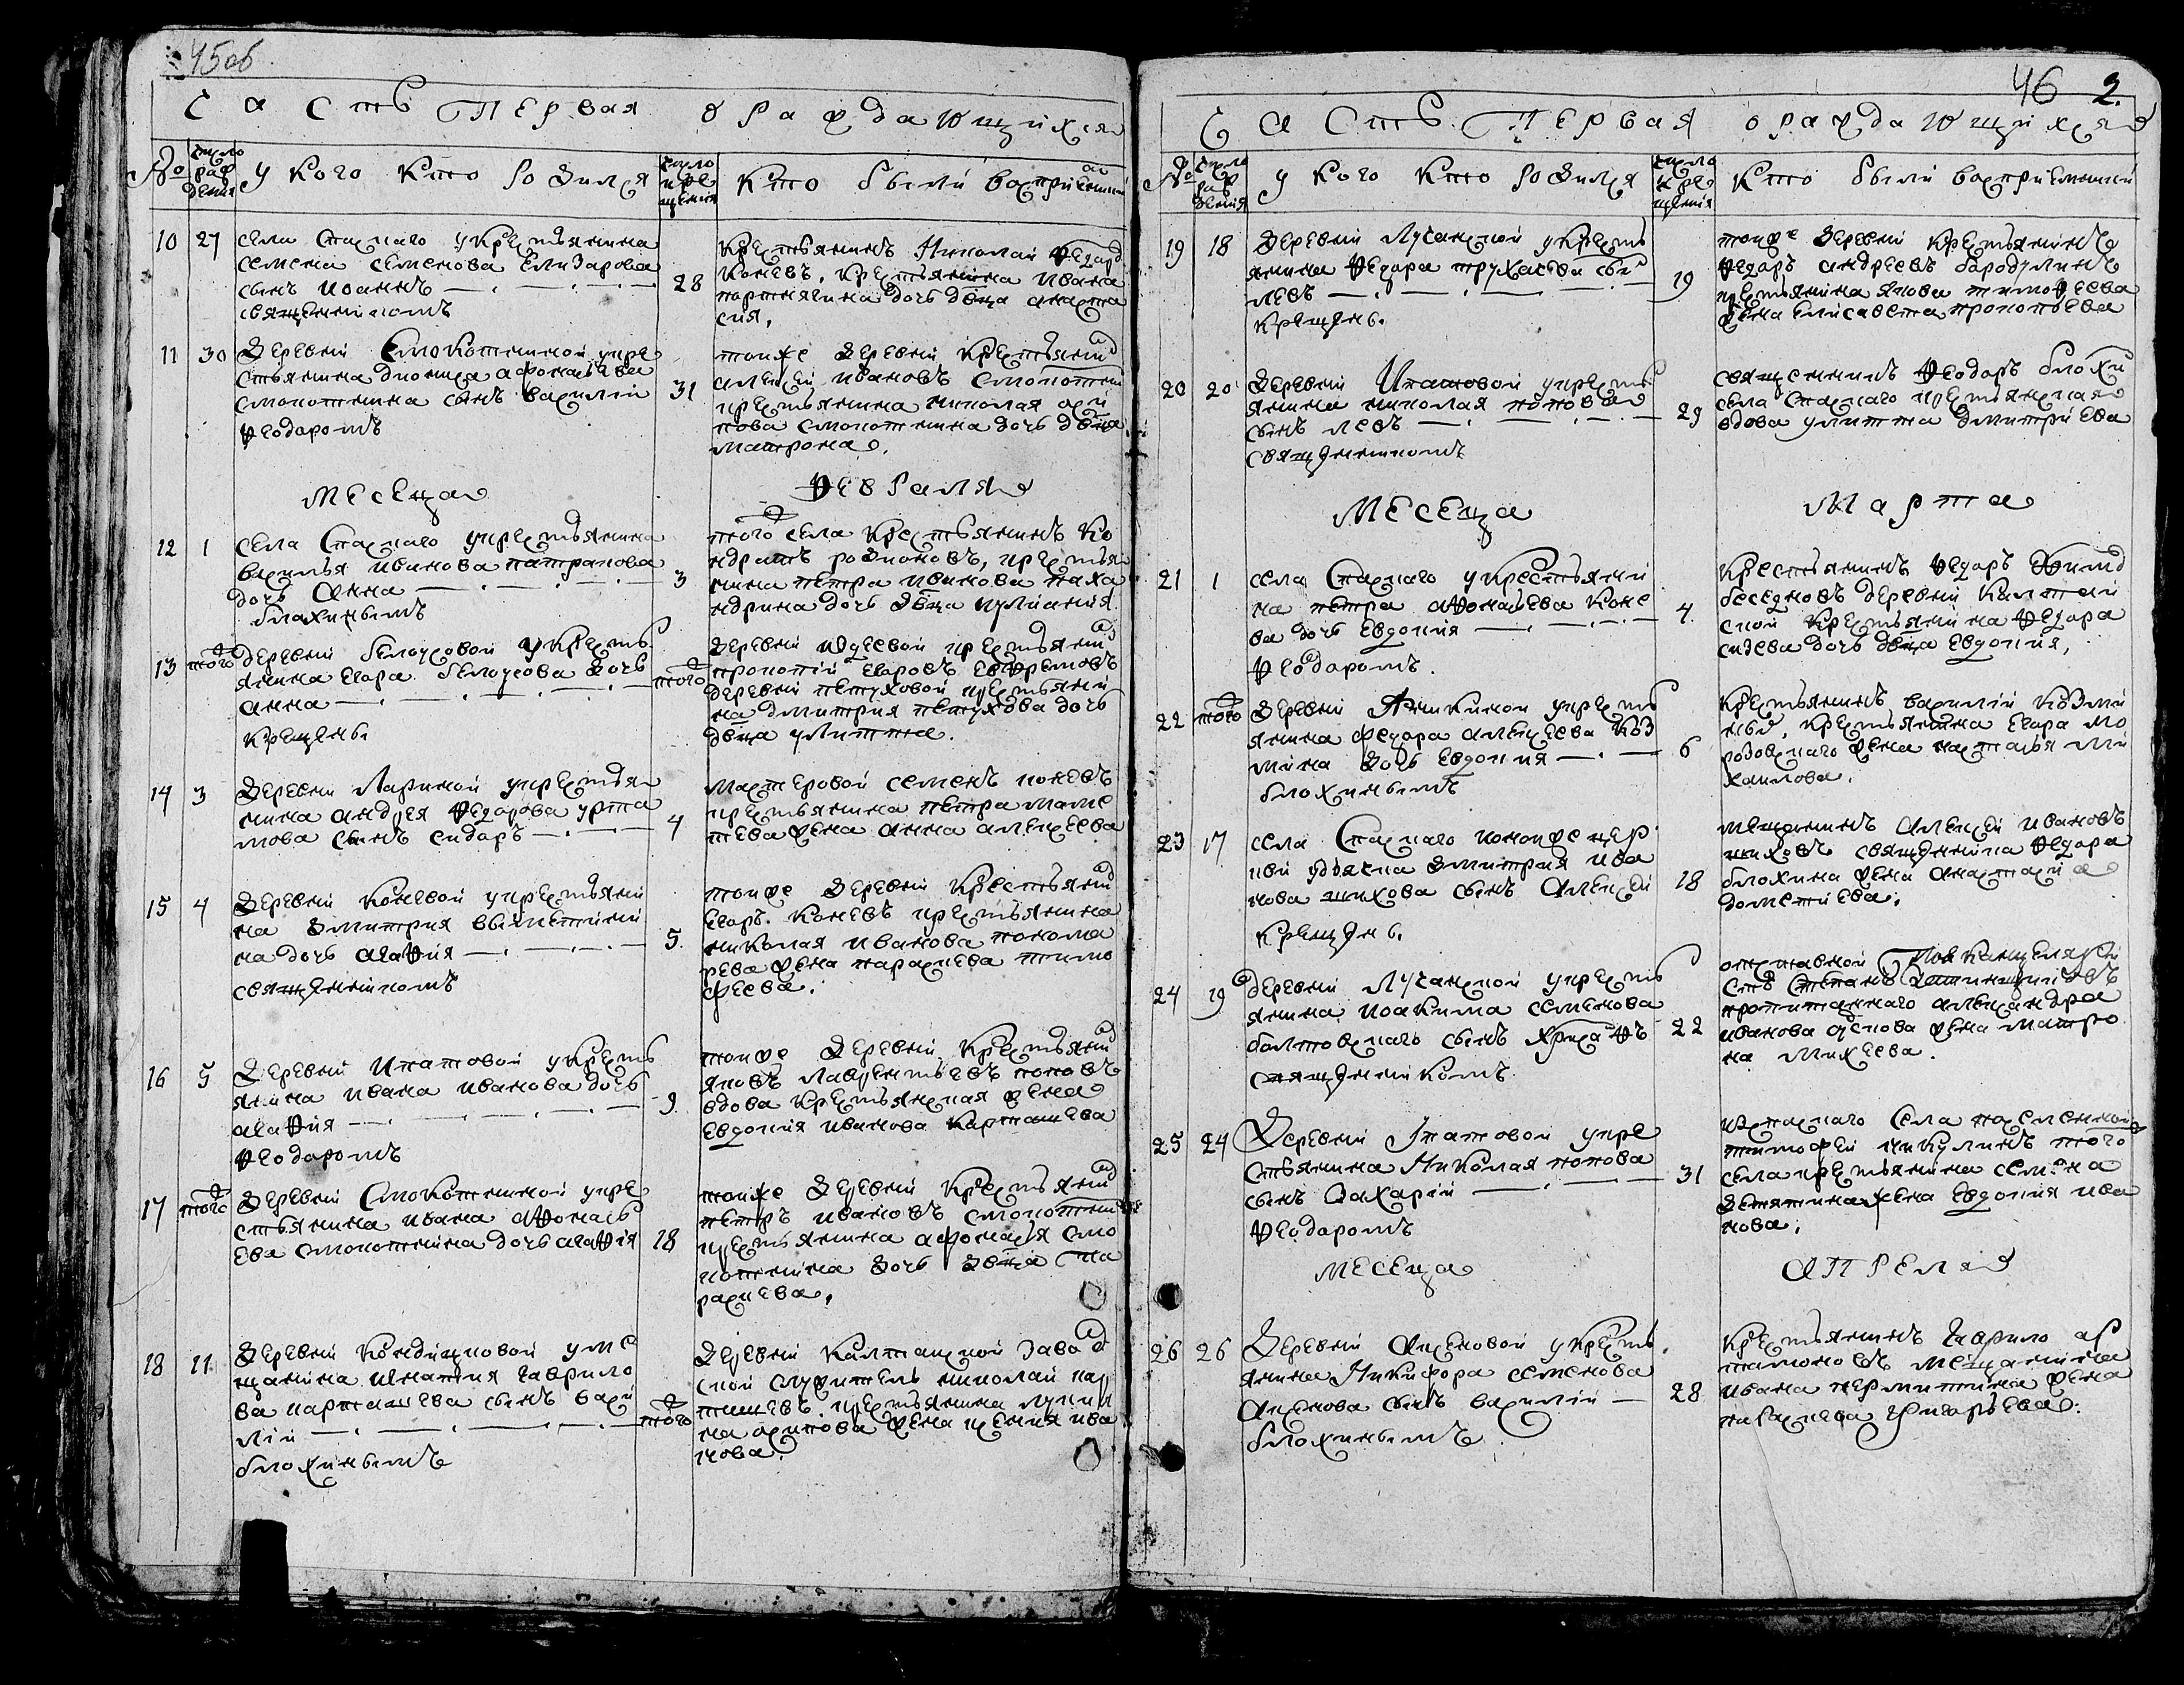 45об
Часть Первая о раждающихся
№ число раждения у кого кто родился число крещения кто были восприемники
10 27 села Спаскаго у крестьянина
семена семенова Елизарова
сынъ иоаннъ
священникомъ
28 крестьянинъ Николай Федоро
коневъ, крестьянина ивана
дочь девца анаста
сия,
11 30 Деревни Смокотниной у кре
стьянина дионисия афонасьева
смокотнина сынъ василий
Феодоромъ
31 тояже деревни крестьянинъ
алексей ивановъ смокотнин
крестьянина николая
смокотнина дочь девца
матрона.
месеца Февраля
12 1 села Спаскаго у крестьянина
василья иванова патракова
дочь Анна
блохинымъ
3 того села крестьянинъ Ко
ндратъ родионовъ, крестья
нина петра иванова
дочь девца иулиания
13 того деревни белоусовой у кресть
янина егора белоусова дочь
анна
крещенъ.
того деревни крестьянинъ
прокопий егоровъ ефремовъ
деревни петуховой крестьяни
на дмитрия петухова дочь
девца улитта.
14 3 Деревни Лариной у крестьян
нина андрея Федорова урта
мова сынъ сидоръ
4 семенъ коневъ
крестьянина петра маме
тева жена анна алексеева
15 4 Деревни коневой у крестьяни
на дмитрия
на дочь агафия
священникомъ
5. тояже деревни крестьянинъ
егоръ коневъ крестьянина
николая иванова понома
рева жена параскева тимо
феева.
16 5 Деревни Ипатовой у кресть
янина ивана иванова дочь
агафия
Феодоромъ
9. тояже деревни крестьянинъ
яковъ лаврентьевъ поповъ
вдова крестьянская жена
евдокия иванова карташева
17 того Деревни Смокотниной у кре
стьянина ивана афонась
ева смокотнина дочь агафия
18 тояже деревни крестьянинъ
петръ ивановъ смокотнин
крестьянина афонасья смо
котнина дочь девца па
раскева,
18 11 Деревни Кандинсковой у ме
щанина игнатия гаврило
ва карташева сынъ васи
лий
блохинымъ
того Деревни Калтайской завод
ской служитель николай кар
ташевъ. крестьянина лукия
на осипова жена ксения ива
нова.
46 2.
Часть Первая о раждающихся
№ число раждения у кого кто родился число крещения кто были восприемники
19 18 Деревни Лучанской у кресть
янина Федора сынъ
левъ
крещенъ.
19 тояже деревни крестьянинъ
Федоръ андреевъ бородулинъ
крестьянина якова тимофеева
жена елисавета прокопьева
20 20 Деревни Ипатовой у кресть
янина николая попова
сынъ левъ
священникомъ
29 священникъ Феодоръ блохин
села Спаскаго крестьянская
вдова улитта дмитриева
месеца Марта
21 1 села Спаскаго у крестьяни
на петра афонасьева коне
ва дочь евдокия
Феодоромъ.
4. крестьянинъ Федоръ
деревни Калтай
ской крестьянина Федора
дочь девца евдокия,
22 того Деревни Аникиной у кресть
янина федора алексеева коз
мина дочь евдокия
блохинымъ
6 крестьянинъ василий козми
ныхъ, крестьянина егора мо
родовскаго жена настасья ми
хаилова.
23 17 села Спаскаго цер
кви у дьячка дмитрия ива
нова шихова сынъ Алексей
крещенъ.
18 мещанинъ Алексей ивановъ
шиховъ священника Федора
блохина жена анастасия
дометиева.
24 19 деревни Лучанской у кресть
янина иоакима семенова
болтовскаго сынъ хрисанфъ
священникомъ
22 отставной канцеляри
стъ Степанъ
александра
иванова жена матро
на михеева.
25 24 Деревни Ипатовой у кре
стьянина Николая попова
сынъ Захарий
Феодоромъ
31 села
тимофей никулинъ того
села крестьянина семена
жена евдокия ива
нова.
месеца Апреля
26 26 Деревни Аксеновой у кресть
янина Никифора семенова
Аксенова сынъ василий
блохинымъ
28 крестьянинъ гаврило ар
тамоновъ мещанина
ивана пермитина жена
параскева григорьева.